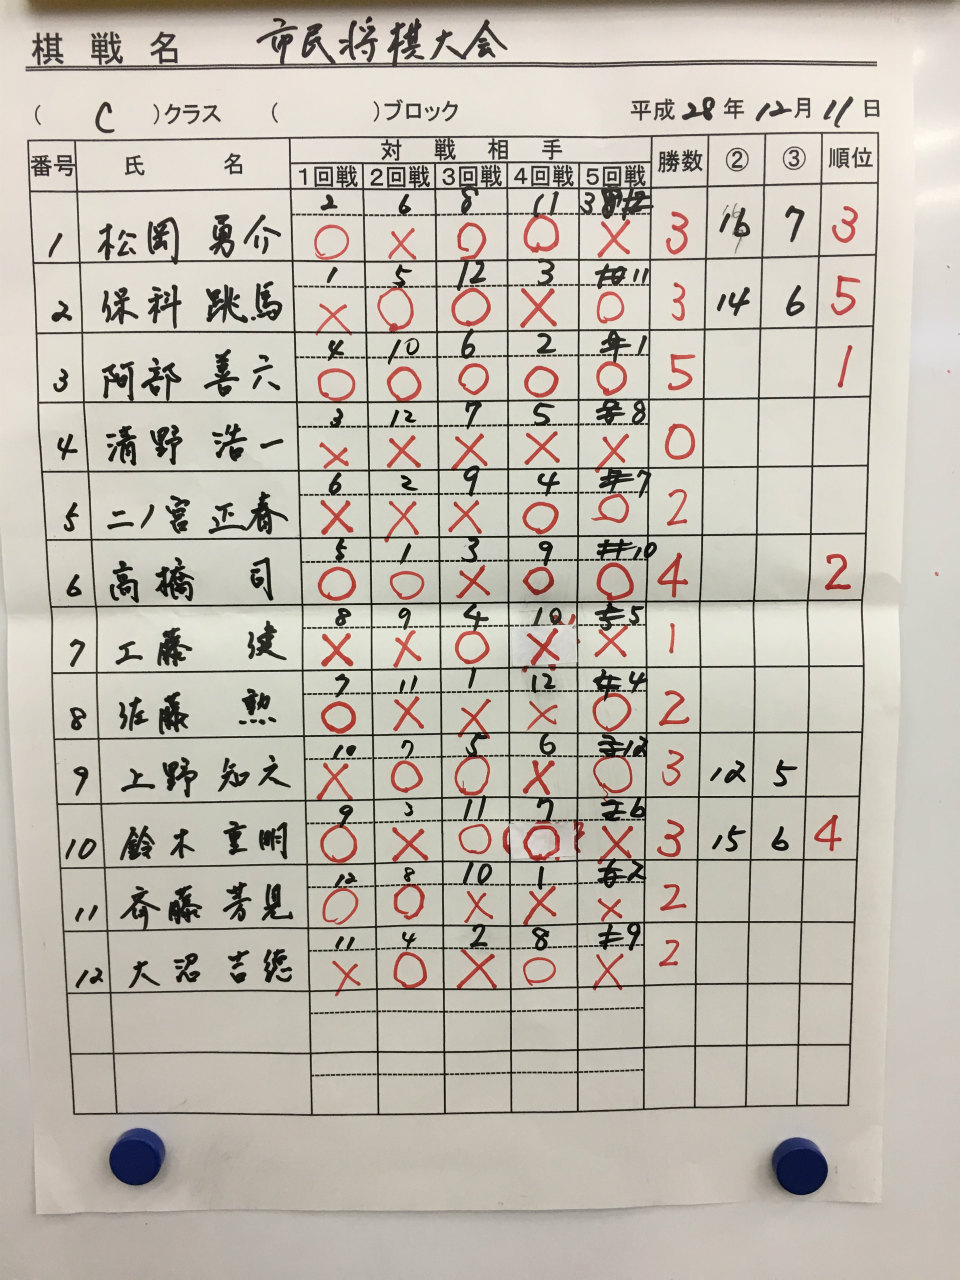 棋戦名 市民将棋大会
( C )クラス ( )ブロック 平成28年12月11日
番号 氏名 対戦相手 勝数 ② ③ 順位
1回戦 2回戦 3回戦 4回戦 5回戦
2 6 8 11 3
1 松岡 勇介 ○ × ○ ○ × 3 16 7 3
1 5 12 3 11
2 保科 跳馬 × ○ ○ × ○ 3 14 6 5
4 10 6 2 1
3 阿部 善六 ○ ○ ○ ○ ○ 5 1
3 12 7 5 8
4 清野 浩一 × × × × × 0
6 2 9 4 7
5 二ノ宮 正春 × × × ○ ○ 2
5 1 3 9 10
6 高橋 司 ○ ○ × ○ ○ 4 2
8 9 4 10 5
7 工藤 健 × × ○ × × 1
7 11 1 12 4
8 佐藤 勲 ○ × × × ○ 2
10 7 5 6 12
9 上野 知之 × ○ ○ × ○ 3 12 5
9 3 11 7 6
10 鈴木 重明 ○ × ○ ○ × 3 15 6 4
12 8 10 1 2
11 斉藤 芳晃 ○ ○ × × × 2
11 4 2 8 9
12 大沼 吉徳 × ○ × ○ × 2